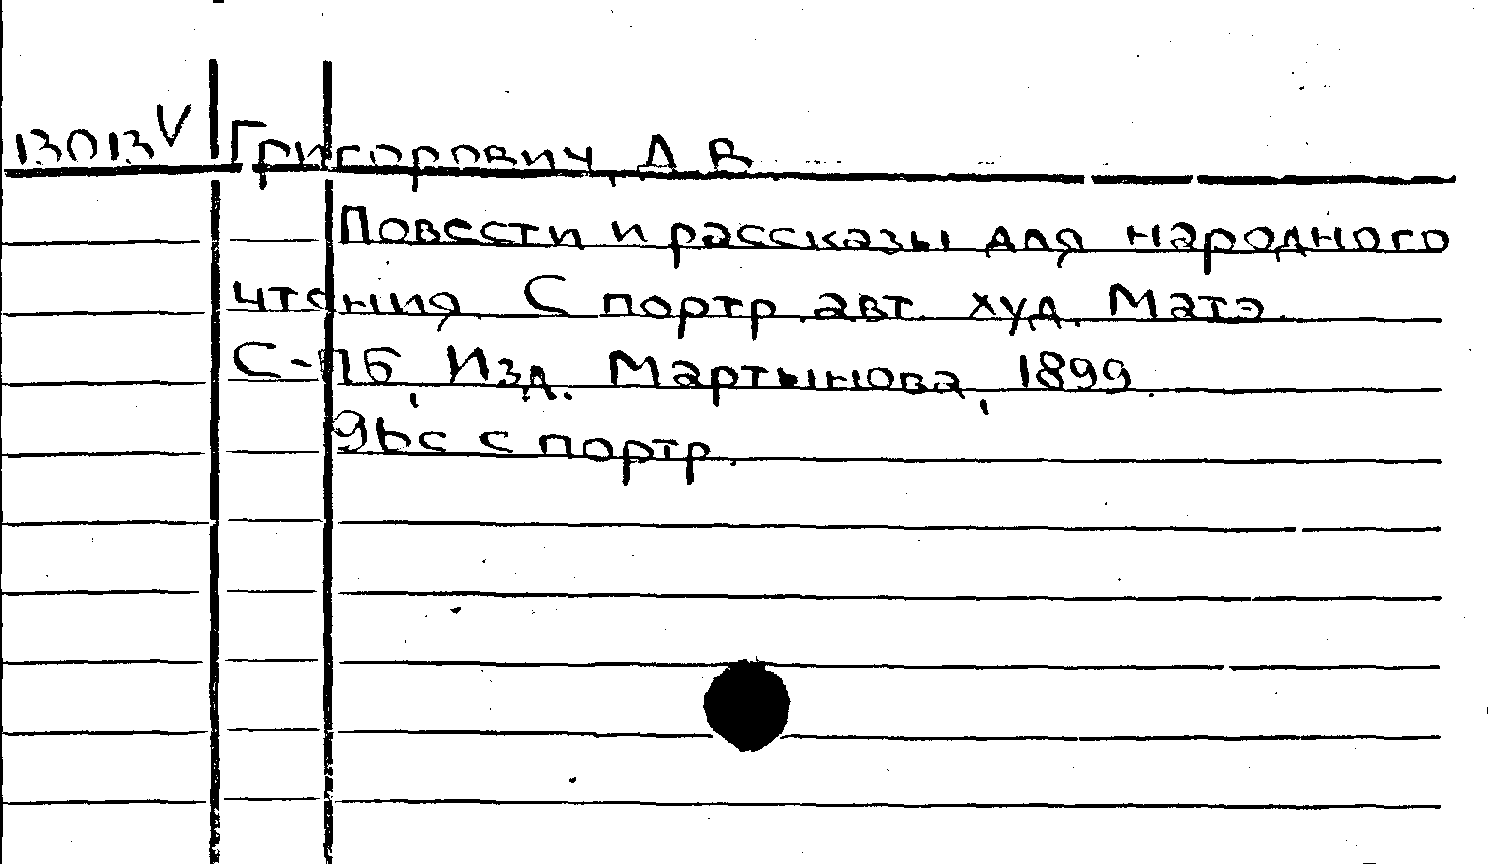 13013V Григорович, Д В
Повести и рассказы для народного
чтения. С портр. авт. худ. Матэ.
С-Пб, Изд. Мартынова, 1899.
96с с портр.